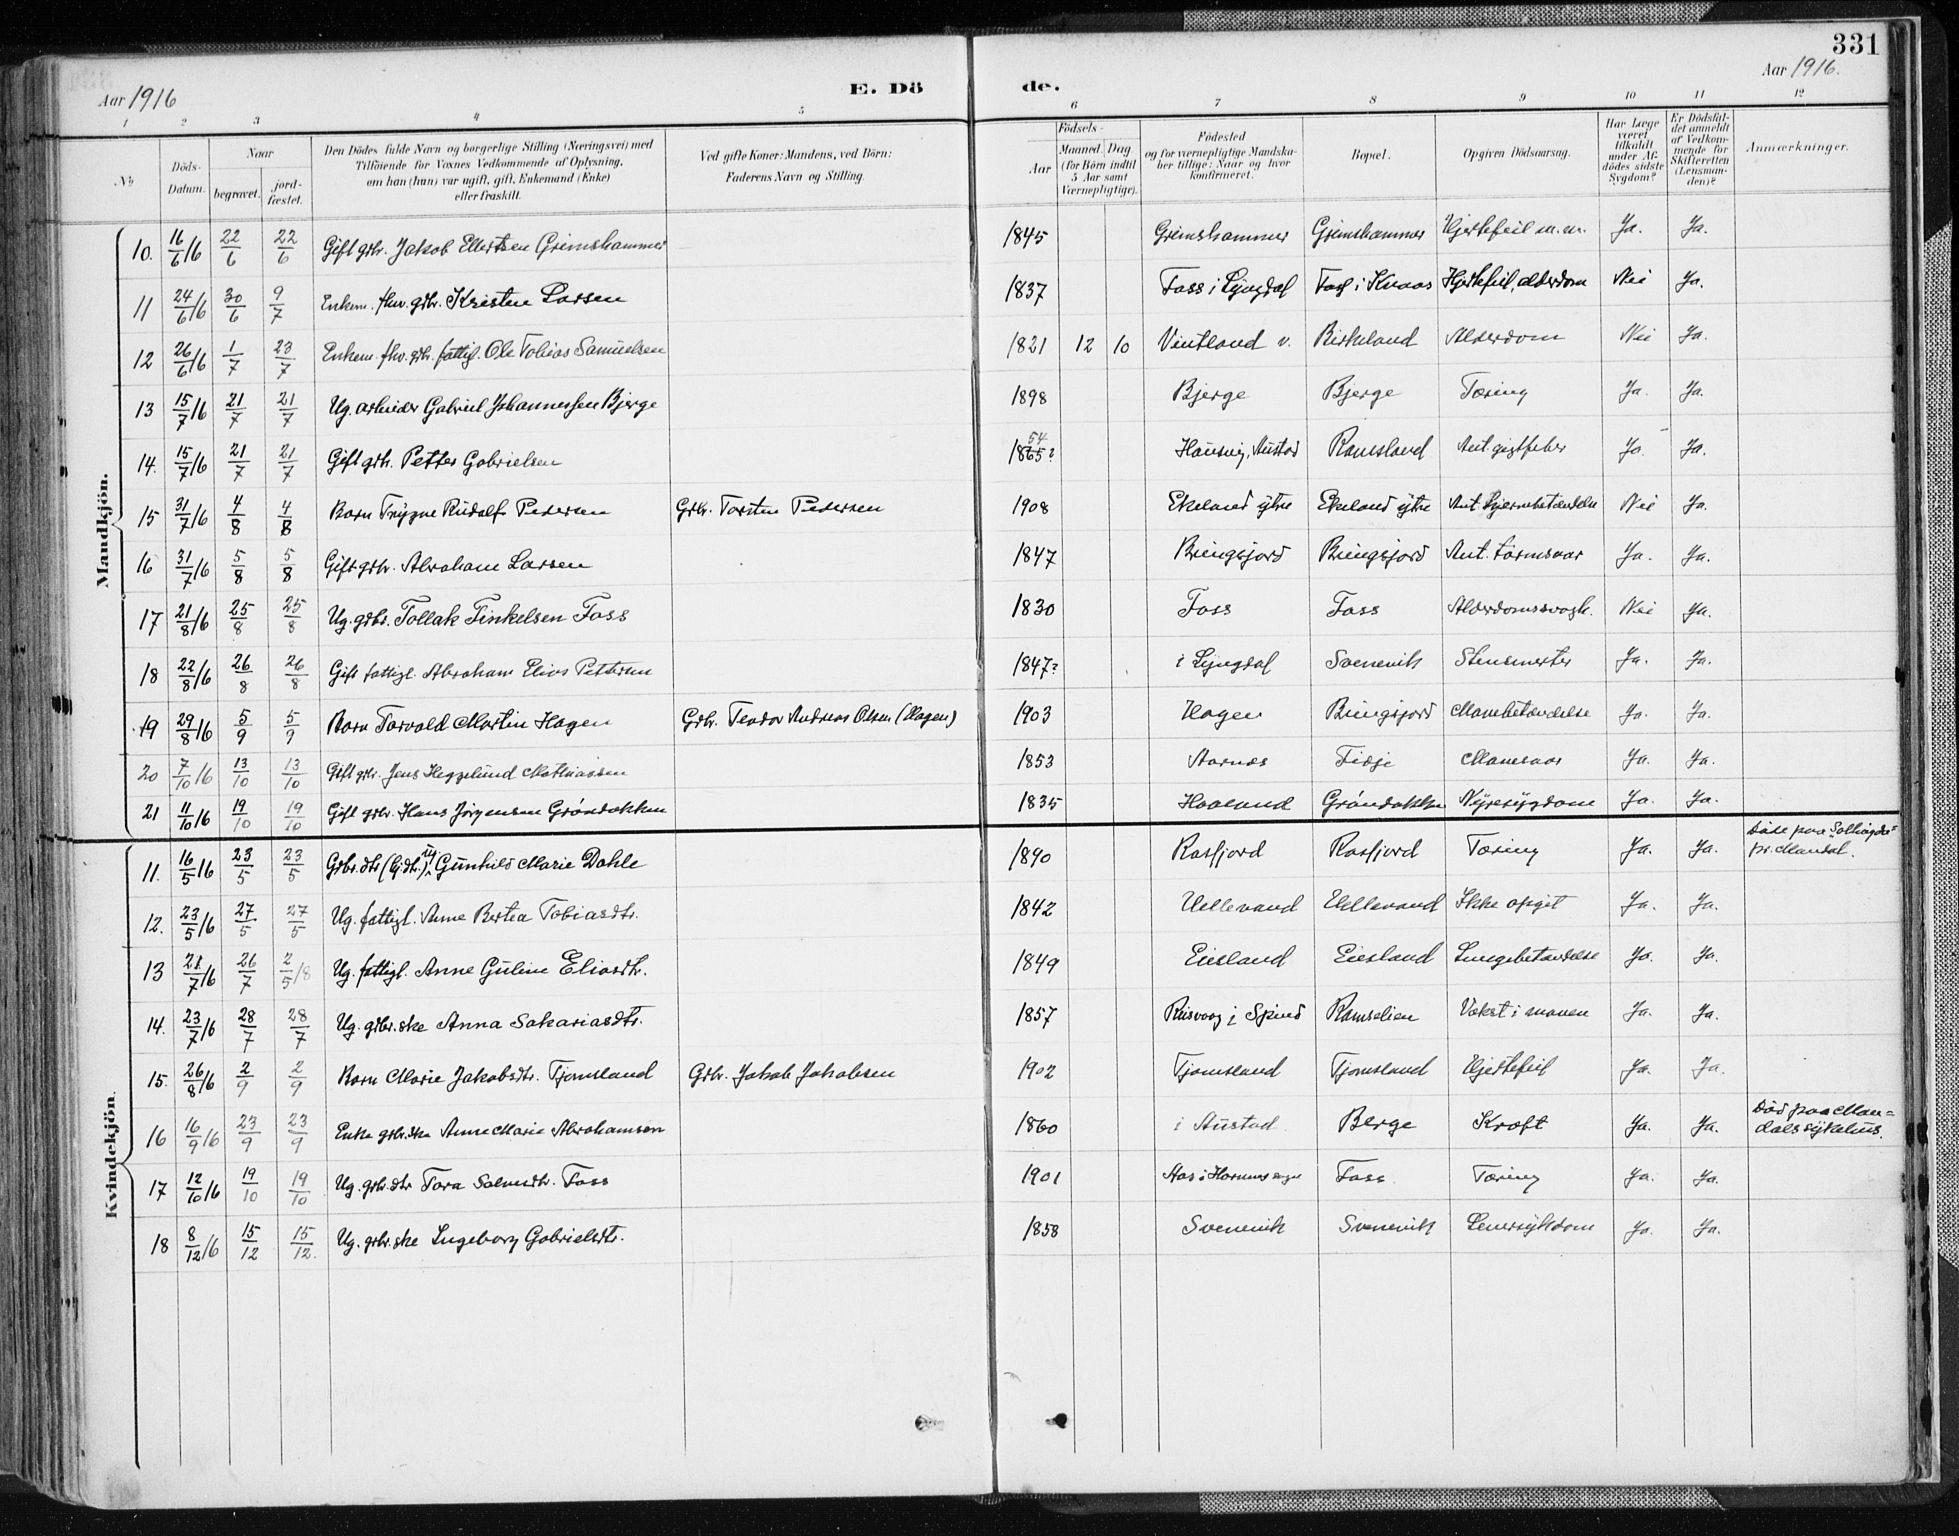 331
Aar 1916
E. Dö
de.
Aar 1916.
1 2 3 4 5 6 7 8 9 10 11 12
№
Döds-
Datum.
Naar
begravet.
jord-
fæstet.
Den Dödes fulde Navn og borgerlige Stilling (Næringsvei) med
Tilföiende for Voxnes Vedkommende af Oplysning,
om han (hun) var ugift, gift, Enkemand (Enke)
eller fraskilt.
Ved gifte Koner: Mandens, ved Börn:
Faderens Navn og Stilling.
Födsels-
Aar
Maaned.
Dag
(for Börn indtil
5 Aar samt
Værnepligtige).
Födested
og for værnepligtige Mandska-
ber tillige: Naar og hvor
konfirmeret.
Bopæl.
Opgiven Dödsaarsag.
Har Læge
været
tilkaldt
under Af-
dödes sidste
Sygdom?
Er Dödsfal-
det anmeldt
af Vedkom-
mende for
Skifteretten
(Lensman-
den)?
Anmærkninger.
Mandkjön.
10. 16/6 16 22/6 22/6 Gift gbr. Jakob Ellertsen Grimshammer 1845 Grimshammer Grimshammer Hjertefeil m.m. Ja. Ja.
11 24/6 16 30/6 9/7 Enkem. fhv. gbr. Kristen Larsen 1837 Foss i Lyngdal Foss i Kvaas Hjertefeil, alderdom Nei Ja.
12 26/6 16 1/7 23/7 Enkem. fhv. gbr. fattigl. Ole Tobias Samuelsen 1821 12 10 Vintland v. Birkeland Alderdom Nei Ja.
13 15/7 16 21/7 21/7 Ug. arbeider Gabriel Johannessen Bjerge 1898 Bjerge Bjerge Tæring Ja. Ja.
14. 15/7 16 21/7 21/7 Gift gbr. Petter Gabrielsen 1865? 54 Hausvig, Austad Ramsland Ant. gigtfeber Ja. Ja.
15 31/7 16 4/8 4/8 Barn Trygve Rudolf Pedersen Gbr. Torsten Pedersen 1908 Ekeland ytre Ekeland ytre Ant. hjernebetændelse Nei Ja.
16 31/7 16 5/8 5/8 Gift gbr. Abraham Larsen 1847 Bringsjord Bringsjord Ant. tarmsaar Ja. Ja.
17 21/8 16 25/8 25/8 Ug. gbr. Tollak Tinkelsen Foss 1830 Foss Foss Alderdomssvagh. Nei Ja.
18 22/8 16 26/8 26/8 Gift fattigl. Abraham Elias Pettersen 1847? i Lyngdal Svenevik Stensmerter Ja. Ja.
19 29/8 16 5/9 5/9 Barn Torvald Martin Hagen Gbr. Teodor Andreas Olsen (Hagen) 1903 Hagen Bringsjord Mavebetændelse Ja. Ja.
20 7/10 16 13/10 13/10 Gift gbr. Jens Heggelund Mathiassen 1853 Aarnes Fidje Mavesaar Ja. Ja.
21 11/10 16 19/10 19/10 Gift gbr. Hans Jørgensen Grøndokken 1835 Haaland Grøndokken Nyresygdom Ja. Ja.
Kvindekjön.
11. 16/5 16 23/5 23/5 Gbr. dtr (G.dtr.) ug. Gunhild Marie Dahle 1890 Rosfjord Rosfjord Tæring Ja. Ja. Døde paa Solhøgda=
pr. Mandal.
12. 23/5 16 27/5 27/5 Ug. fattigl. Anne Bertea Tobiasdtr. 1842 Uellevand Uellevand Ikke opgit Ja. Ja.
13 21/7 16 26/7 2/5 18 Ug. fattigl. Anne Guline Eliasdtr. 1849 Eiesland Eiesland Lungebetændelse Ja. Ja.
14. 23/7 16 28/7 28/7 Ug. gbr.ske Anna Sakariasdtr. 1857 Risvaag i Spind Ramselien Vekst i maven Ja. Ja.
15. 26/8 16 2/9 2/9 Barn Marie Jakobsdtr. Tjomsland Gbr. Jakob Jakobsen 1902 Tjomsland Tjomsland Hjertefeil Ja. Ja.
16 16/9 16 23/9 23/9 Enke gbr.ske Anne Marie Abrahamsen 1860 i Austad Berge Kræft Ja. Ja. Død paa Man=
dals sykehus.
17 12/10 16 19/10 19/10 Ug. gbr.dtr Tora Salvesdtr. Foss 1901 Aas i Foss Tæring Ja. Ja.
18 8/12 16 15/12 15/12. Ug. gbr.ske Ingeborg Gabrielsdtr. 1858 Svenevik Svenevik Leversykdom Ja. Ja.